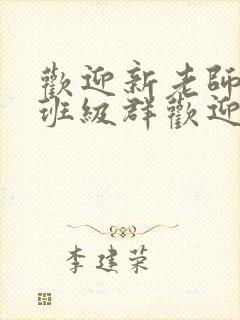 歡迎新老師
班級群歡迎
李建荣